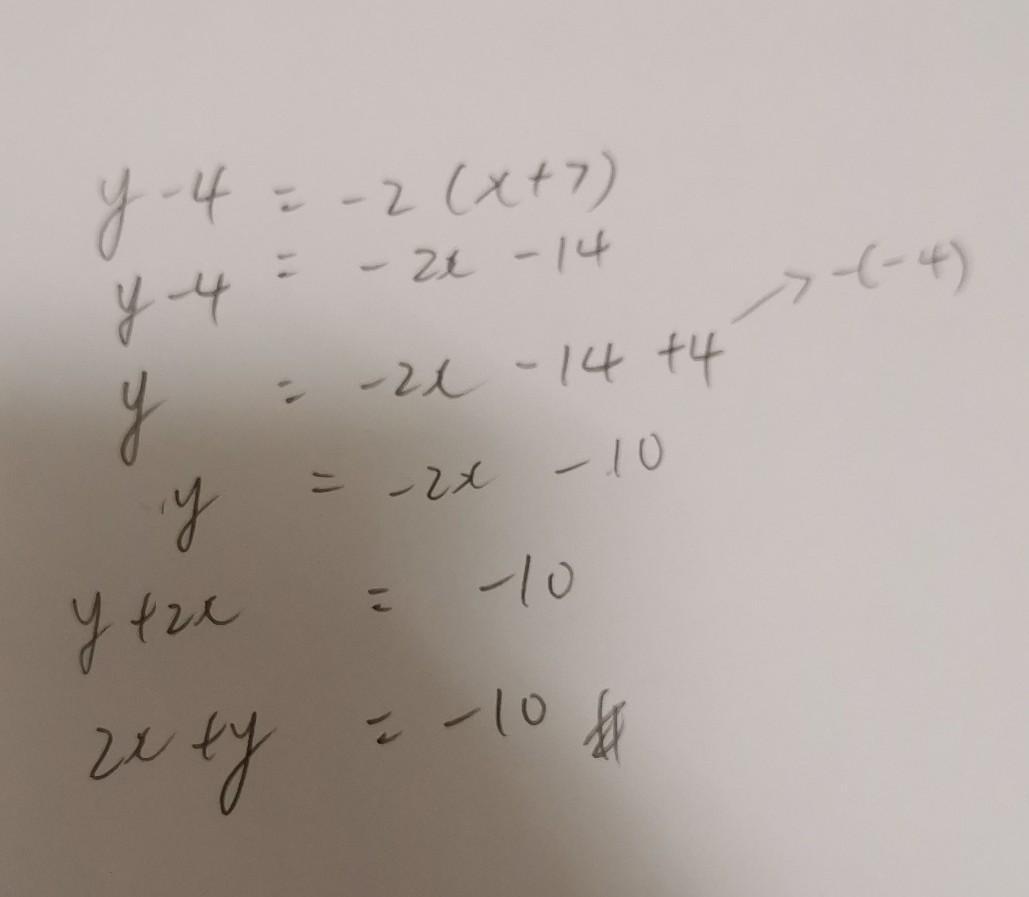 y-4 = -2 (x+7)
y-4 = -2x -14
y = -2x -14 +4 → -(-4)
y = -2x -10
y+2x = -10
2x+y = -10 #